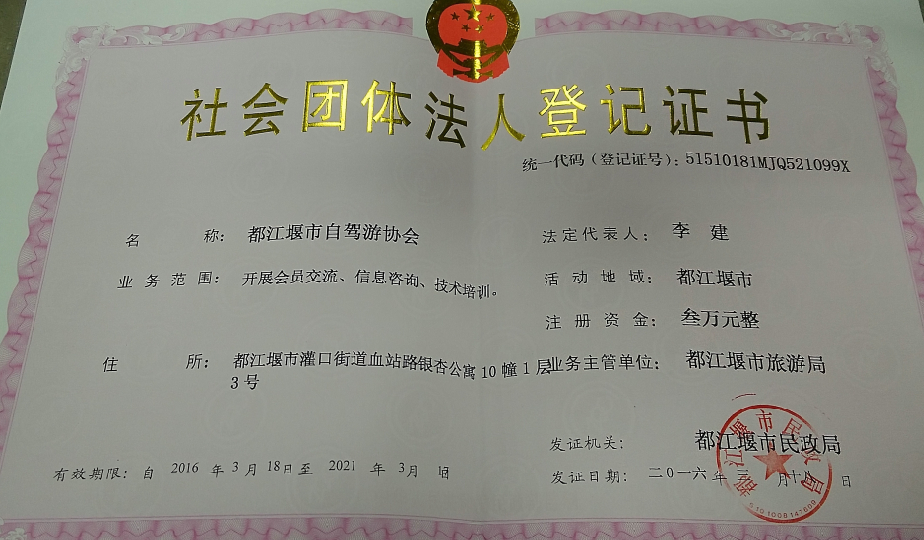 社会团体法人登记证书
统一代码（登记证号）：51510181MJQ521099X
名 称： 都江堰市自驾游协会
法定代表人： 李 建
业务范围： 开展会员交流、信息咨询、技术培训。
活动地域： 都江堰市
注册资金： 叁万元整
住 所： 都江堰市灌口街道血站路银杏公寓10幢1层
3号
业务主管单位： 都江堰市旅游局
发证机关： 都江堰市民政局
有效期限：自 2016 年 3 月 18 日至 2021 年 3 月 日
发证日期：二〇一六 年 三 月 日
都江堰市民政局